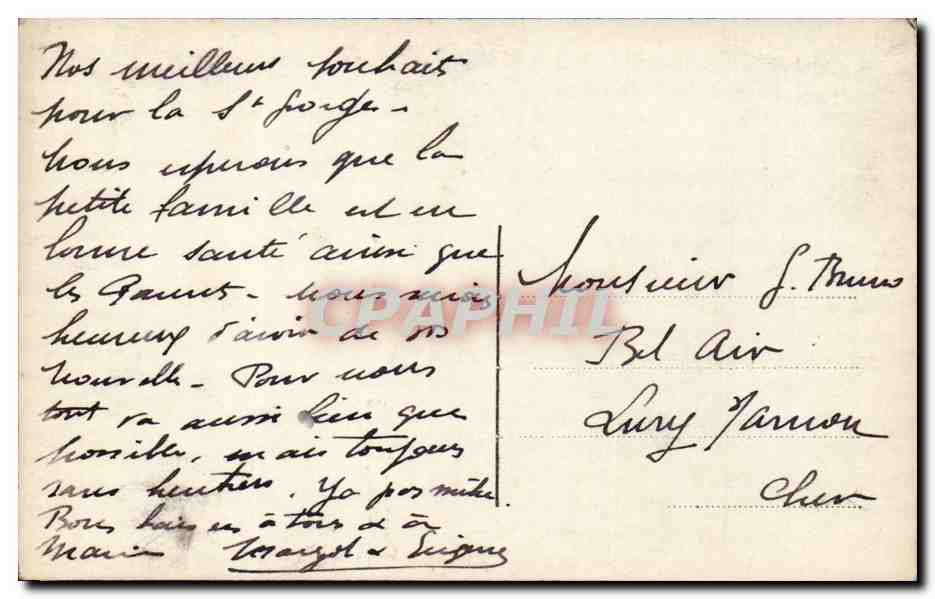 Nos meilleurs souhaits
pour la St Georges -
Nous esperons que la
petite famille est en
bonne santé ainsi que
les Parents - nous serions
heureux d'avoir de vos
nouvelles - Pour nous
tout va aussi bien que
possible, mais toujours
sans heritiers. Ya pas
Bons baisers à tous & à
Marie Margot & Eugene
Monsieur G. Bruno
Bel Air
Lury s/Arnon
Cher
CPAPHIL